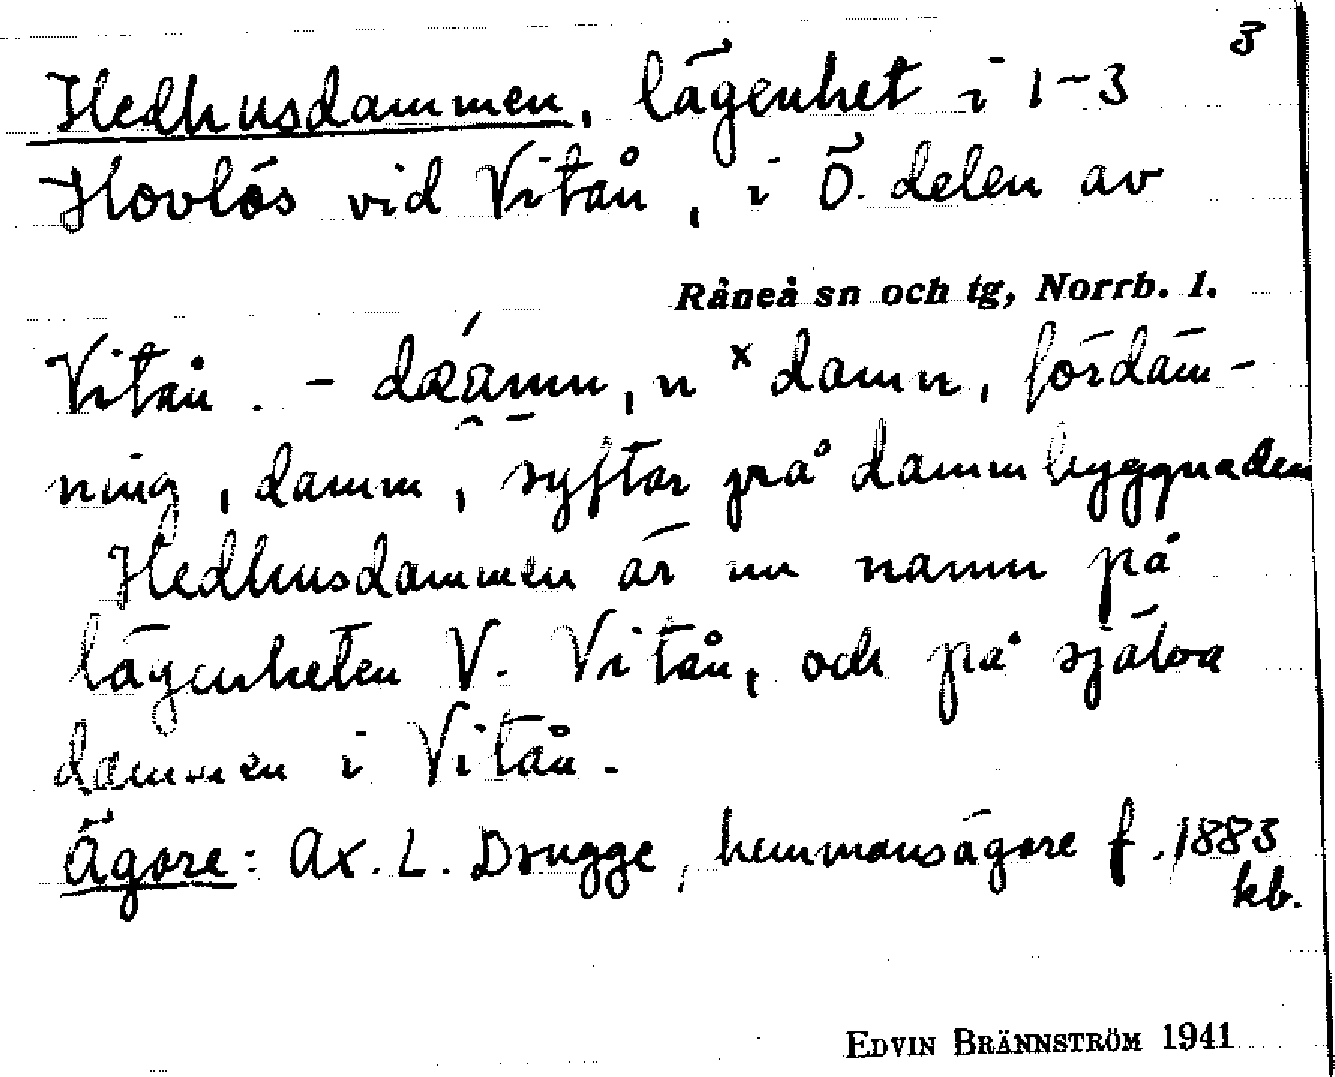 3
Hedhusdammen, lägenhet i 1-3
Hovlös vid Vitån, i Ö. delen av
Råneå sn och tg, Norrb. l.
Vitån. - dæämn, n x damn, fördäm-
ning, damm, syftar på dammbyggnaden
Hedhusdammen är nu namn på
lägenheten V. Vitån, och på själva
dammen i Vitån.
Ägare: Ax. L. Drugge, hemmansägare f. 1883
kb.
EDVIN BRÄNNSTRÖM 1941